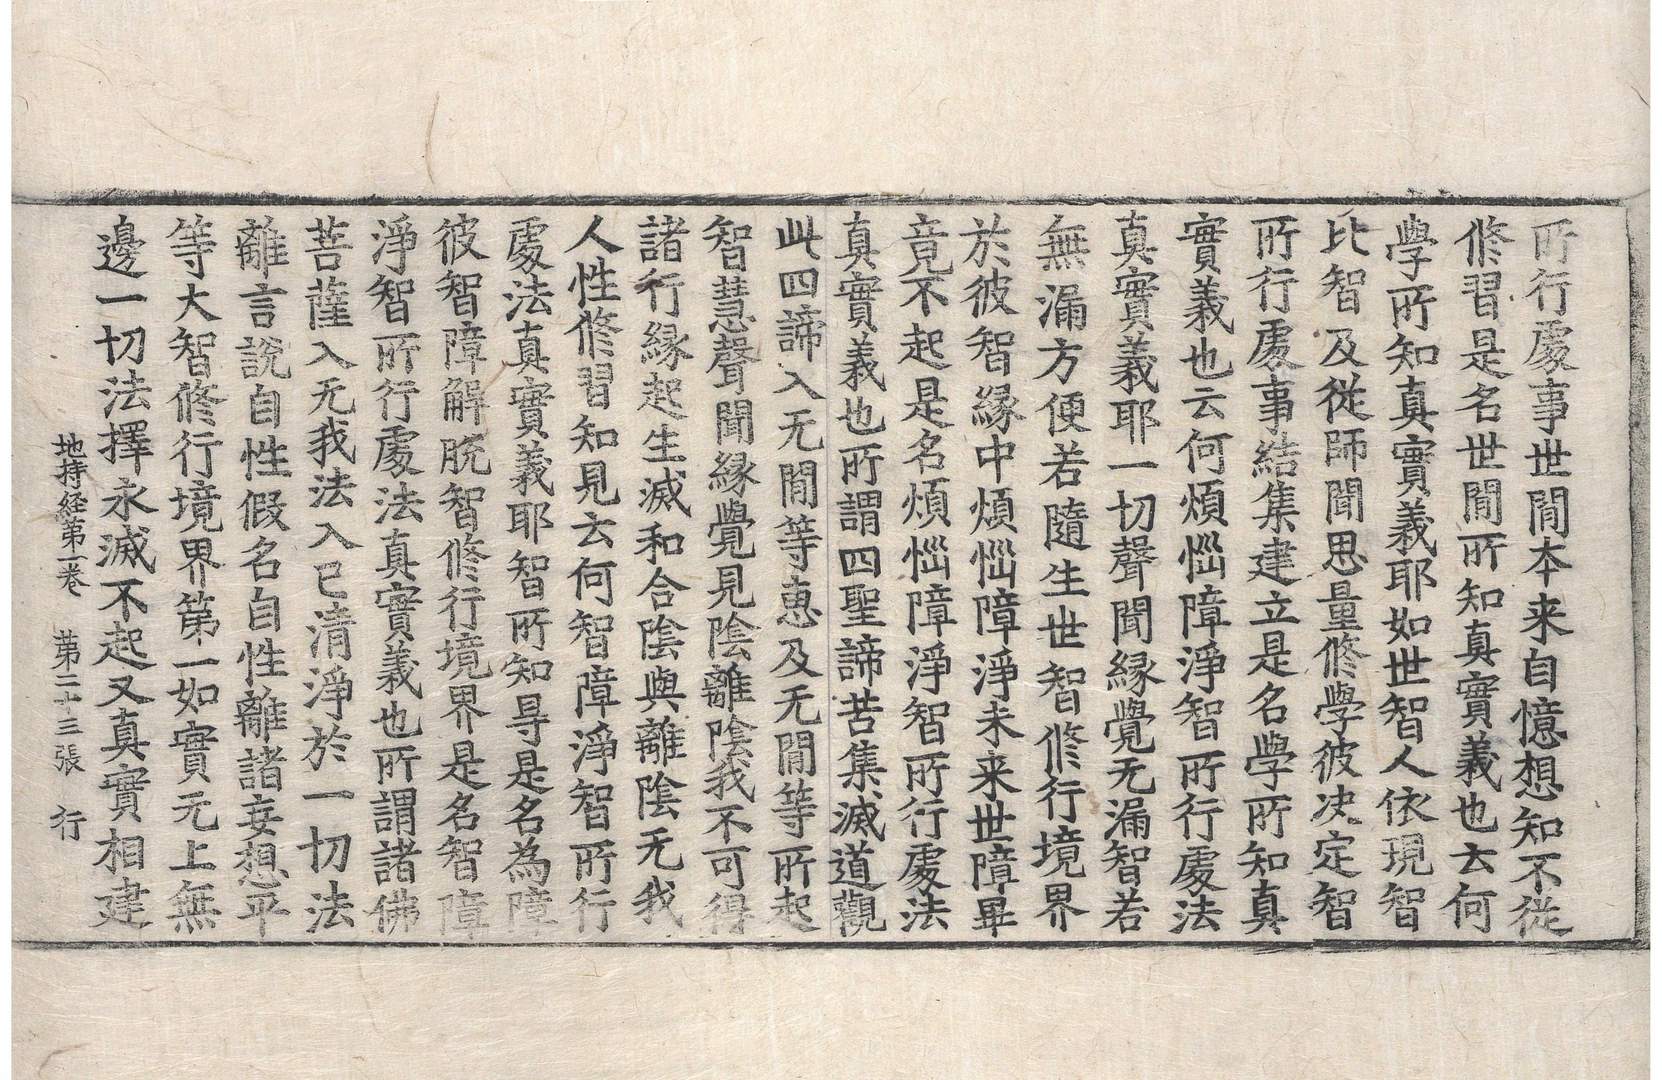 所行處事世間本来自憶想知不從
修習是名世間所知真實義也云何
學所知真實義耶如世智人依現智
比智及從師聞思量修學彼决定智
所行處事結集建立是名學所知真
實義也云何煩惱障淨智所行處法
真實義耶一切聲聞縁覺无漏智若
無漏方便若隨生世智修行境界
於彼智縁中煩惱障淨未来世障畢
竟不起是名煩惱障淨智所行處法
真實義也所謂四聖諦苦集滅道觀
此四諦入无間等恵及无間等所起
智慧聲聞縁覺見陰離陰我不可得
諸行縁起生滅和合陰與離陰无我
人性修習知見云何智障淨智所行
處法真實義耶智所知㝵是名為障
彼智障解脫智修行境界是名智障
淨智所行處法真實義也所謂諸佛
菩薩入无我法入已清淨於一切法
離言說自性假名自性離諸妄想平
等大智修行境界第一如實无上無
邊一切法擇永滅不起又真實相建
地持経第一卷 苐二十三張 行